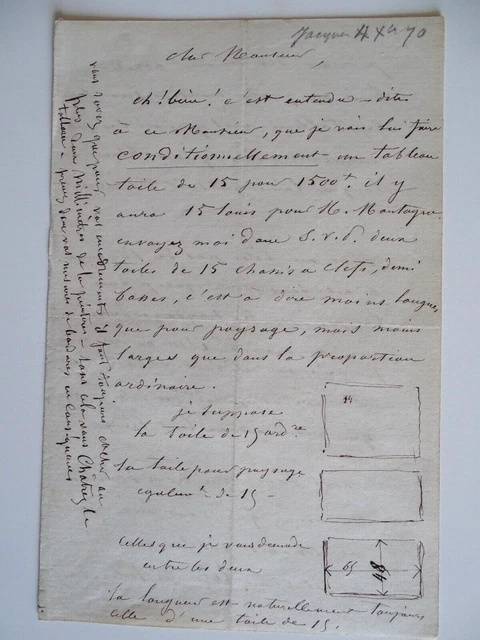 Jacques 4 Xbre 70
cher Monsieur,
eh! bien! c'est entendu - dites
à ce Monsieur, que je vais lui faire
conditionnellement un tableau
toile de 15 pour 1500f. il y
aura 15 louis pour M. Montagne.
envoyez moi donc S.v.p. deux
toiles de 15 chassis à clefs, demi
basses, c'est à dire moins longues,
que pour paysage, mais moins
larges que dans la proportion
ordinaire.
je suppose
la toile de 15 ordre
la toile pour paysage
equivalt de 15 -
celles que je vous demande
entre les deux
la longueur est naturellement toujours
celle d'une toile de 15.
54
65
48
vous savez que pour vos encadrements il faut toujours cacher au
plus deux millimètres de la peinture - sans cela vous châtrez le
tableau - prenez donc vos mesures de bordures en conséquence